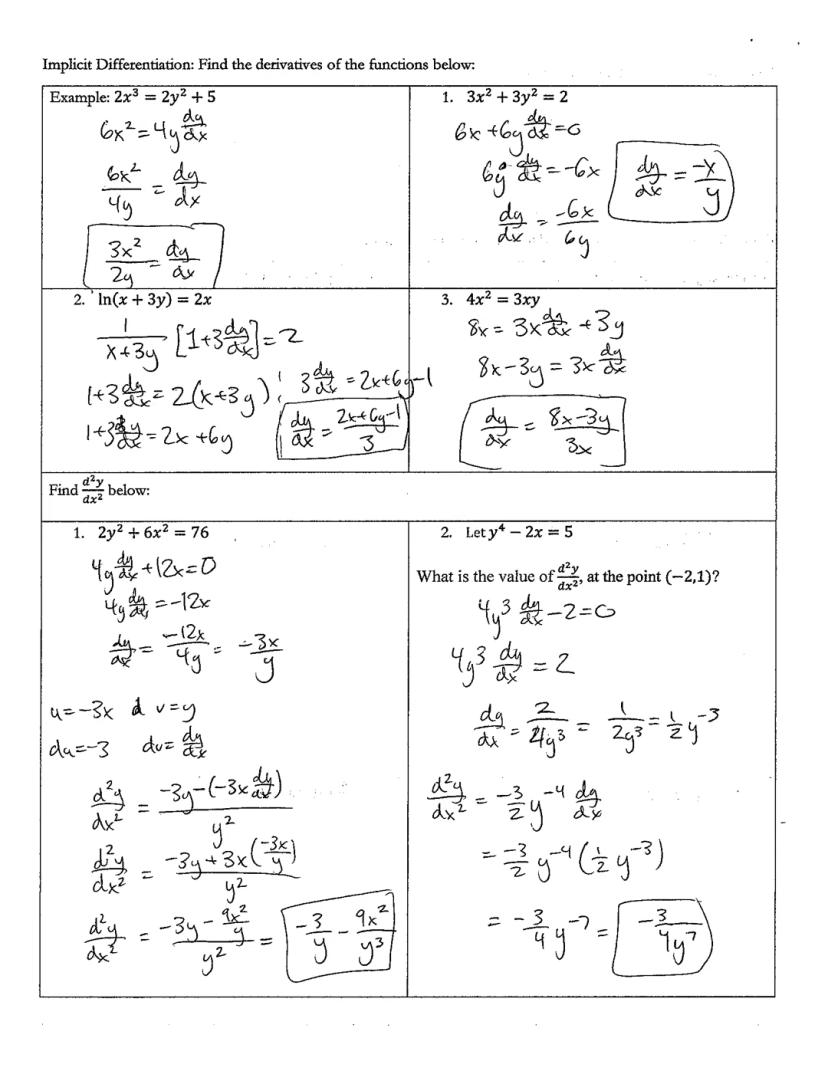 Implicit Differentiation: Find the derivatives of the functions below:
Example: 2x³ = 2y² + 5
6x² = 4y dy/dx
6x²/4y = dy/dx
3x²/2y = dy/dx
1. 3x² + 3y² = 2
6x + 6y dy/dx = 0
6y dy/dx = -6x
dy/dx = -6x/6y
dy/dx = -x/y
2. ln(x + 3y) = 2x
1/(x+3y) [1+3 dy/dx] = 2
1+3 dy/dx = 2(x+3y)
1+3 dy/dx = 2x + 6y
3 dy/dx = 2x+6y-1
dy/dx = (2x+6y-1)/3
3. 4x² = 3xy
8x = 3x dy/dx + 3y
8x-3y = 3x dy/dx
dy/dx = (8x-3y)/3x
Find d²y/dx² below:
1. 2y² + 6x² = 76
4y dy/dx + 12x = 0
4y dy/dx = -12x
dy/dx = -12x/4y = -3x/y
u = -3x v = y
du = -3 dv = dy/dx
d²y/dx² = (-3y-(-3x dy/dx))/y²
d²y/dx² = (-3y+3x(-3x/y))/y²
d²y/dx² = (-3y - 9x²/y)/y² = -3/y - 9x²/y³
2. Let y⁴ − 2x = 5
What is the value of d²y/dx², at the point (−2,1)?
4y³ dy/dx - 2 = 0
4y³ dy/dx = 2
dy/dx = 2/4y³ = 1/2y³ = ½ y⁻³
d²y/dx² = -3/2 y⁻⁴ dy/dx
= -3/2 y⁻⁴ (½ y⁻³)
= -3/4 y⁻⁷ = -3/4y⁷